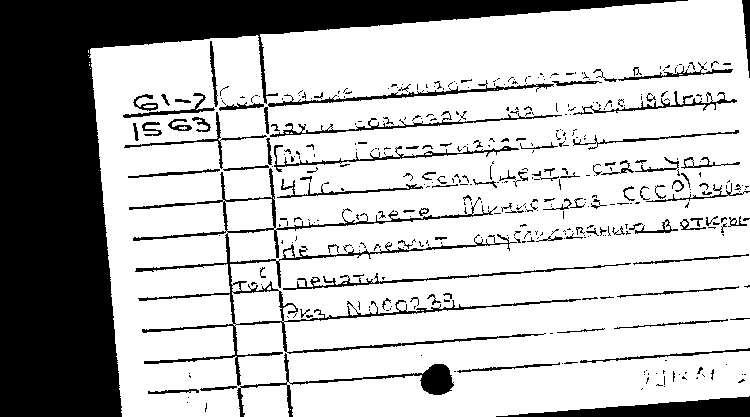 61-7 Состояние животноводства в колхо-
1563 зах и совхозах на 1 июля 1961 года.
[М], Госстатиздат, 1961.
47с. 25см. (Центр. стат. упр.
при Совете Министров СССР) 240экз
Не подлежит опубликованию в откры-
той печати.
Экз. N000239.